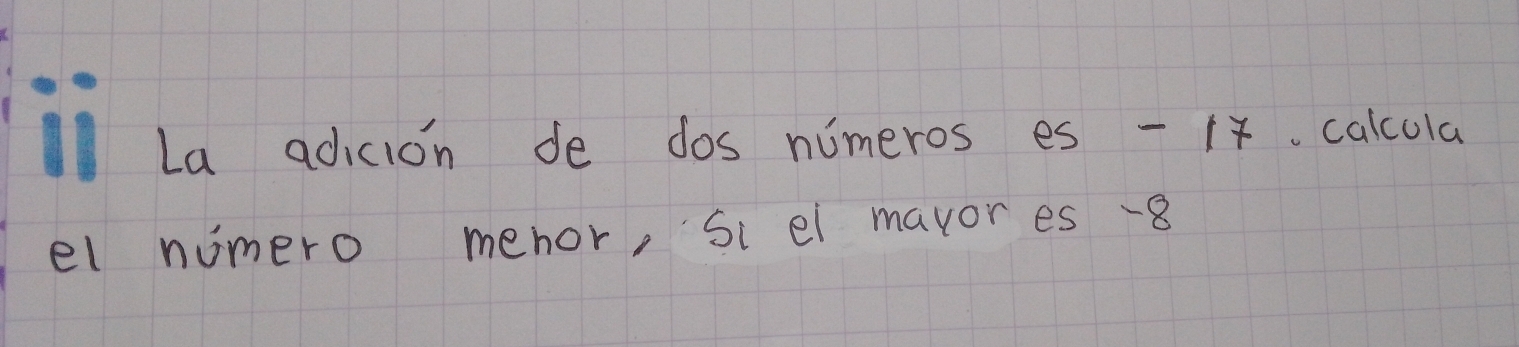 ii La adición de dos números es - 17. calcula
el número menor, si el mayor es -8